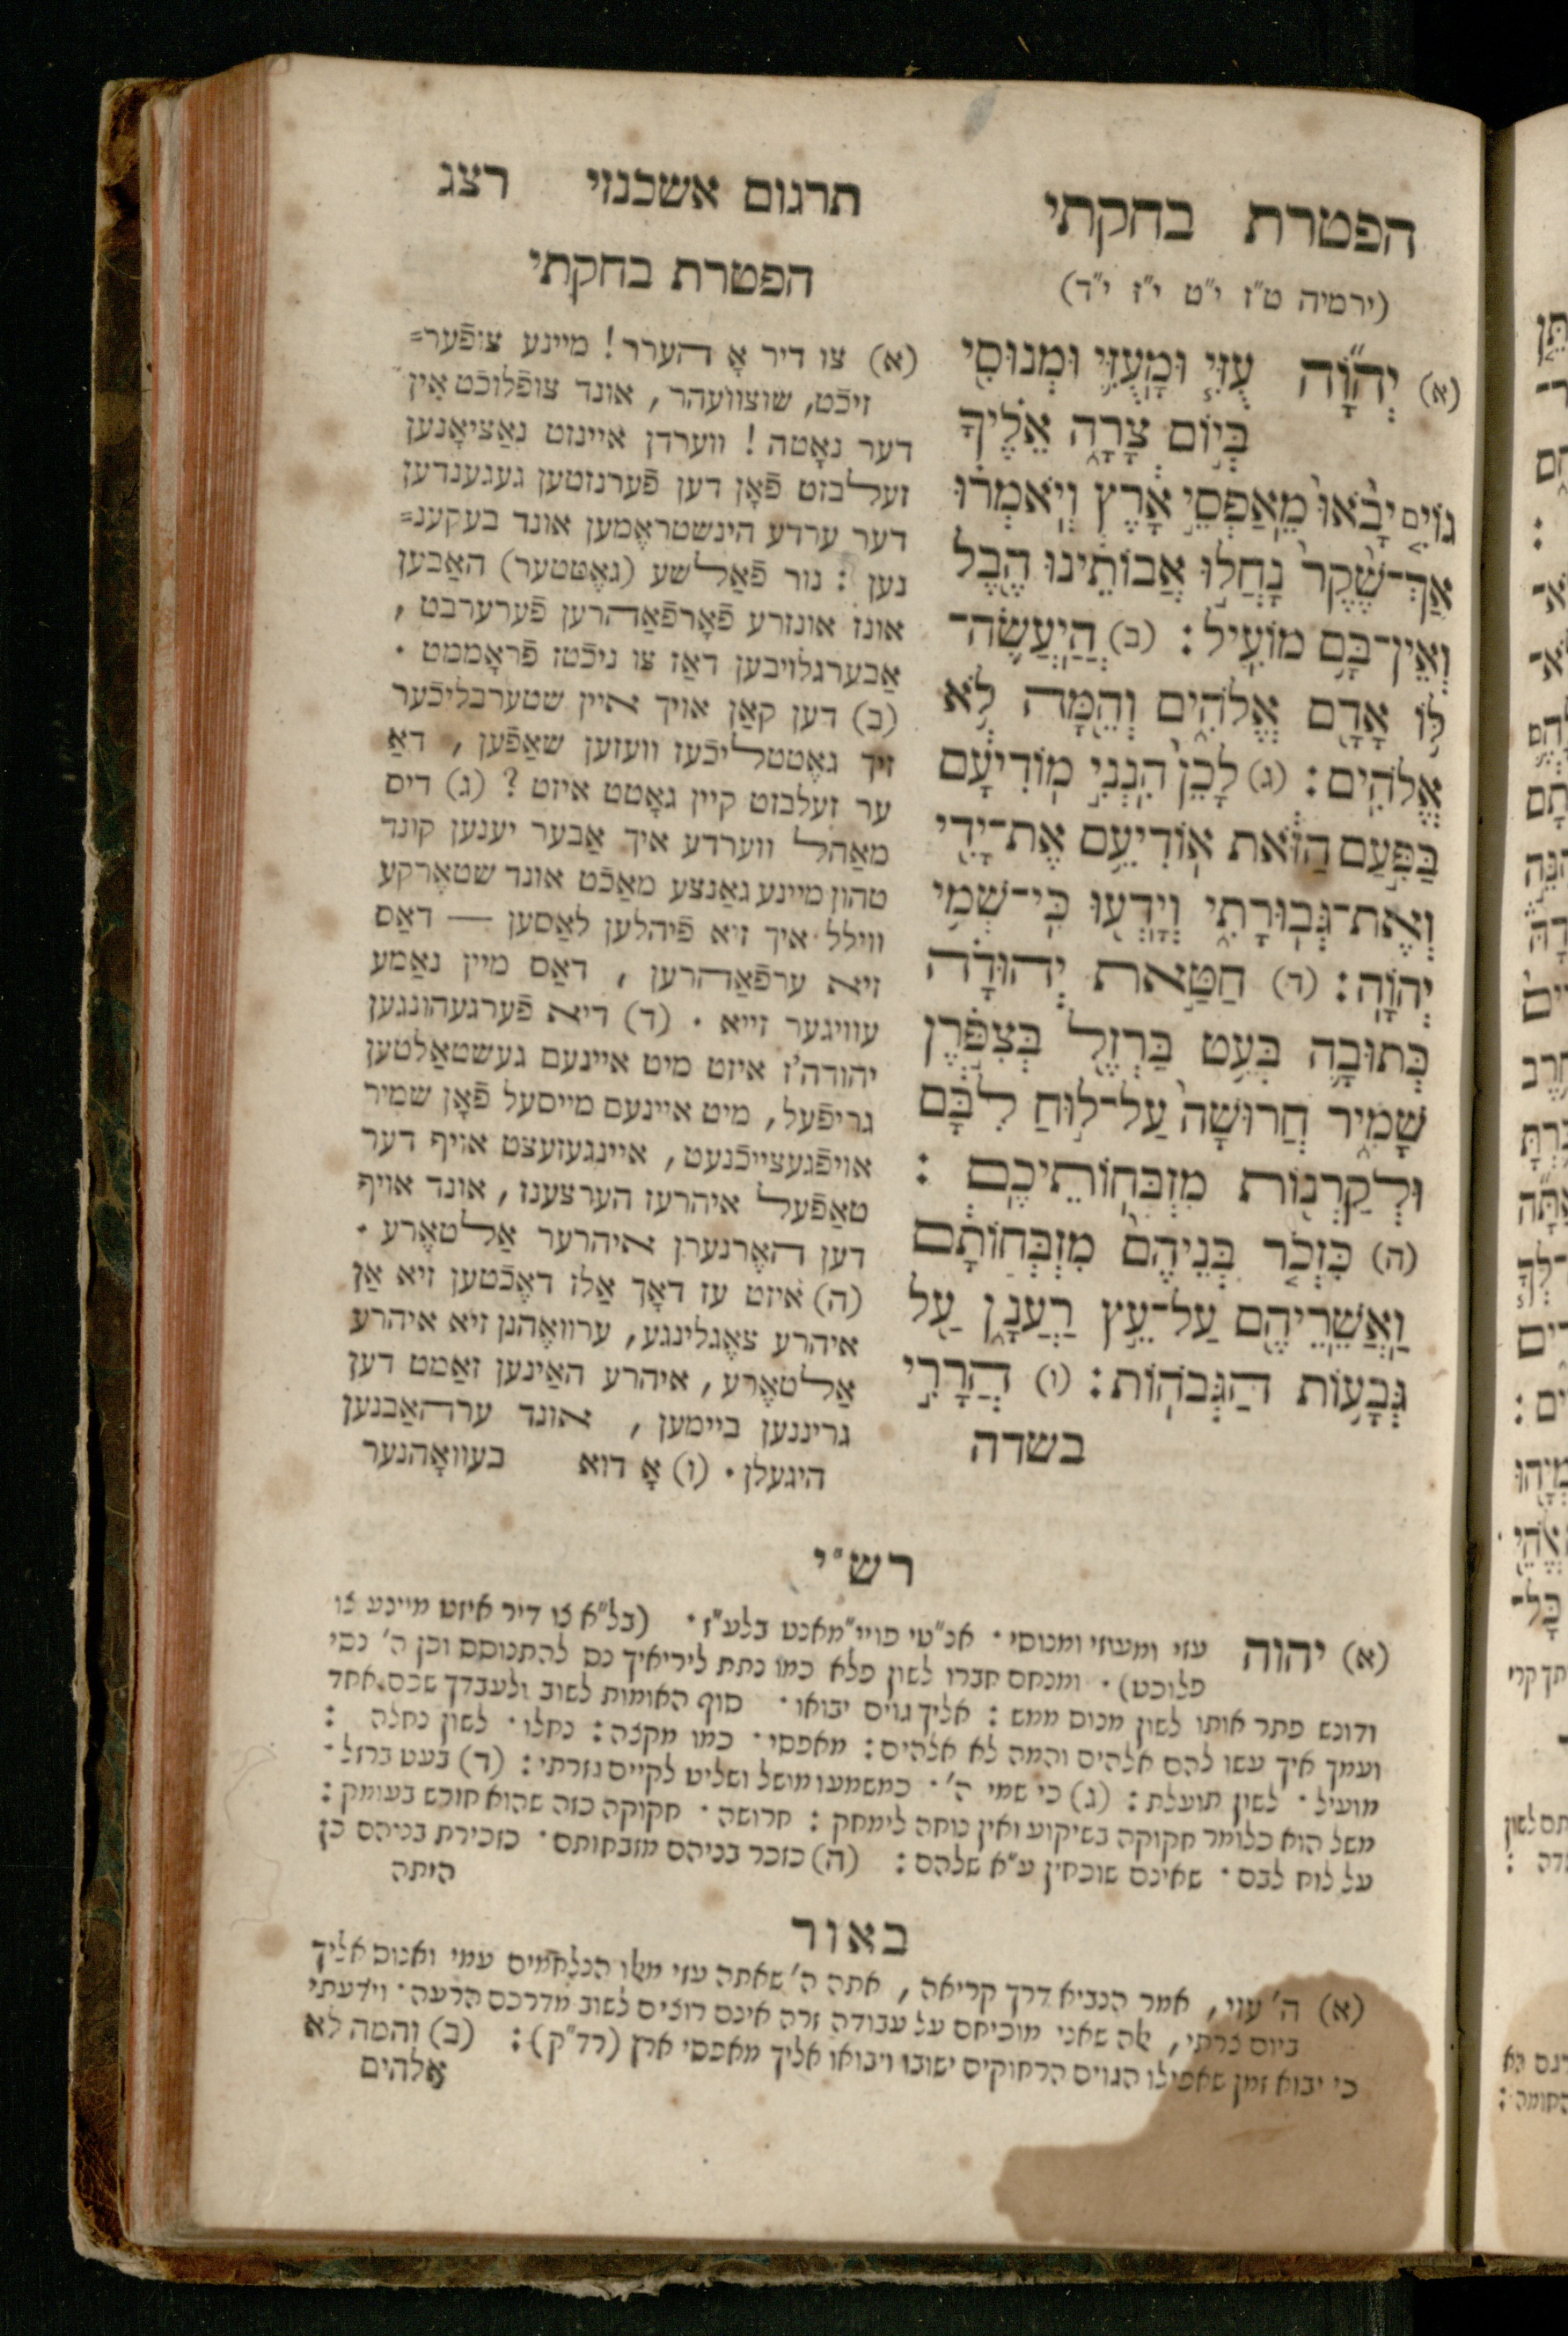 הפטרת בחקתי
(ירמיה ט"ז י"ט י"ז י"ד)
(א) יְהוָֹה עֻזִּי וּמָעֻזִּי וּמְנוּסִי
בְּיוֹם צָרָה אֵלֶיךָ
גּוֹיִם יָבֹאוּ מֵאַפְסֵי אָרֶץ וְיֹאמְרוּ
אַךְ־שֶׁקֶר נָחֲלוּ אֲבוֹתֵינוּ הֶבֶל
וְאֵין־בָּם מוֹעִיל : (ב) הֲיַעֲשֶׂה־
לּוֹ אָדָם אֱלֹהִים וְהֵמָּה לֹא
אֱלֹהִים : (ג) לָכֵן הִנְנִי מוֹדִיעָם
בַּפַּעַם הַזֹּאת אוֹדִיעֵם אֶת־יָדִי
וְאֶת־גְּבוּרָתִי וְיָדְעוּ כִּי־שְׁמִי
יְהוָֹה : (ד) חַטַּאת יְהוּדָה
כְּתוּבָה בְּעֵט בַּרְזֶל בְּצִפֹּרֶן
שָׁמִיר חֲרוּשָׁה עַל־לוּחַ לִבָּם
וּלְקַרְנוֹת מִזְבְּחוֹתֵיכֶם :
(ה) כִּזְכֹּר בְּנֵיהֶם מִזְבְּחוֹתָם
וַאֲשֵׁרֵיהֶם עַל־עֵץ רַעֲנָן עַל
גְּבָעוֹת הַגְּבֹהוֹת : (ו) הֲרָרִי
בשדה
תרגום אשכנזי רצג
הפטרת בחקתי
(א) צו דיר אָ הערר ! מיינע צופֿער=
זיכֿט, שוצוועהר, אונד צופֿלוכֿט אין
דער נאָטה ! ווערדן איינזט נאַציאָנען
זעלבזט פֿאָן דען פֿערנזטען געגענדען
דער ערדע הינשטראֶמען אונד בעקענ=
נען : נור פֿאַלשע (גאֶטטער) האַבען
אונז אונזרע פֿאָרפֿאַהרען פֿערערבט,
אַבערגלויבען דאַז צו ניכֿטז פֿראָממט .
(ב) דען קאַן אויך איין שטערבליכֿער
זיך גאֶטטליכֿעז וועזען שאַפֿען, דאַ
ער זעלבזט קיין גאָטט איזט ? (ג) דיס
מאַהל ווערדע איך אַבער יענען קונד
טהון מיינע גאַנצע מאַכֿט אונד שטאֶרקע
ווילל איך זיא פֿיהלען לאַסען — דאַס
זיא ערפֿאַהרען, דאַס מיין נאַמע
עוויגער זייא . (ד) דיא פֿערגעהונגען
יהודה'ז איזט מיט איינעם געשטאַלטען
גריפֿעל, מיט איינעם מייסעל פֿאָן שמיר
אויפֿגעצייכֿנעט, איינגעזעצט אויף דער
טאַפֿעל איהרעז הערצענז, אונד אויף
דען האֶרנערן איהרער אַלטאֶרע .
(ה) איזט עז דאָך אַלז דאֶכֿטען זיא אַן
איהרע צאֶגלינגע, ערוואֶהנן זיא איהרע
אַלטאֶרע, איהרע האַינען זאַמט דען
גריננען ביימען, אונד ערהאַבנען
היגעלן . (ו) אָ דוא בעוואָהנער
רש"י
(א) יהוה עזי ומעוזי ומנוסי . אנ"טי פויי"מאנט בלע"ז . (בל"א צו דיר איזט מיינע צו
פלוכט) . ומנחם חברו לשון פלא כמו נתת ליריאיך נס להתנוסס וכן ה' נסי
ודונש פתר אותו לשון מנוס ממש : אליך גוים יבואו . סוף האומות לשוב ולעבדך שכם אחד
ועמך איך עשו להם אלהים והמה לא אלהים : מאפסי . כמו מקצה : נחלו . לשון נחלה :
מועיל . לשון תועלת : (ג) כי שמי ה' . כמשמעו מושל ושליט לקיים גזרתי : (ד) בעט ברזל .
משל הוא כלומר חקוקה בשיקוע ואין נוחה לימחק : חרושה . חקוקה כזה שהוא חורש בעומק :
על לוח לבם . שאינם שוכחין ע"א שלהם : (ה) כזכר בניהם מזבחותם . כזכירת בניהם כן
היתה
באור
(א) ה' עוזי, אמר הנביא דרך קריאה, אתה ה' שאתה עזי מאלו הנלחמים עמי ואנוס אליך
ביום צרתי, אלה שאני מוכיחם על עבודה זרה אינם רוצים לשוב מדרכם הרעה . וידעתי
כי יבוא זמן שאפילו הגוים הרחוקים ישובו ויבואו אליך מאפסי ארץ (רד"ק) : (ב) והמה לא
אלהים